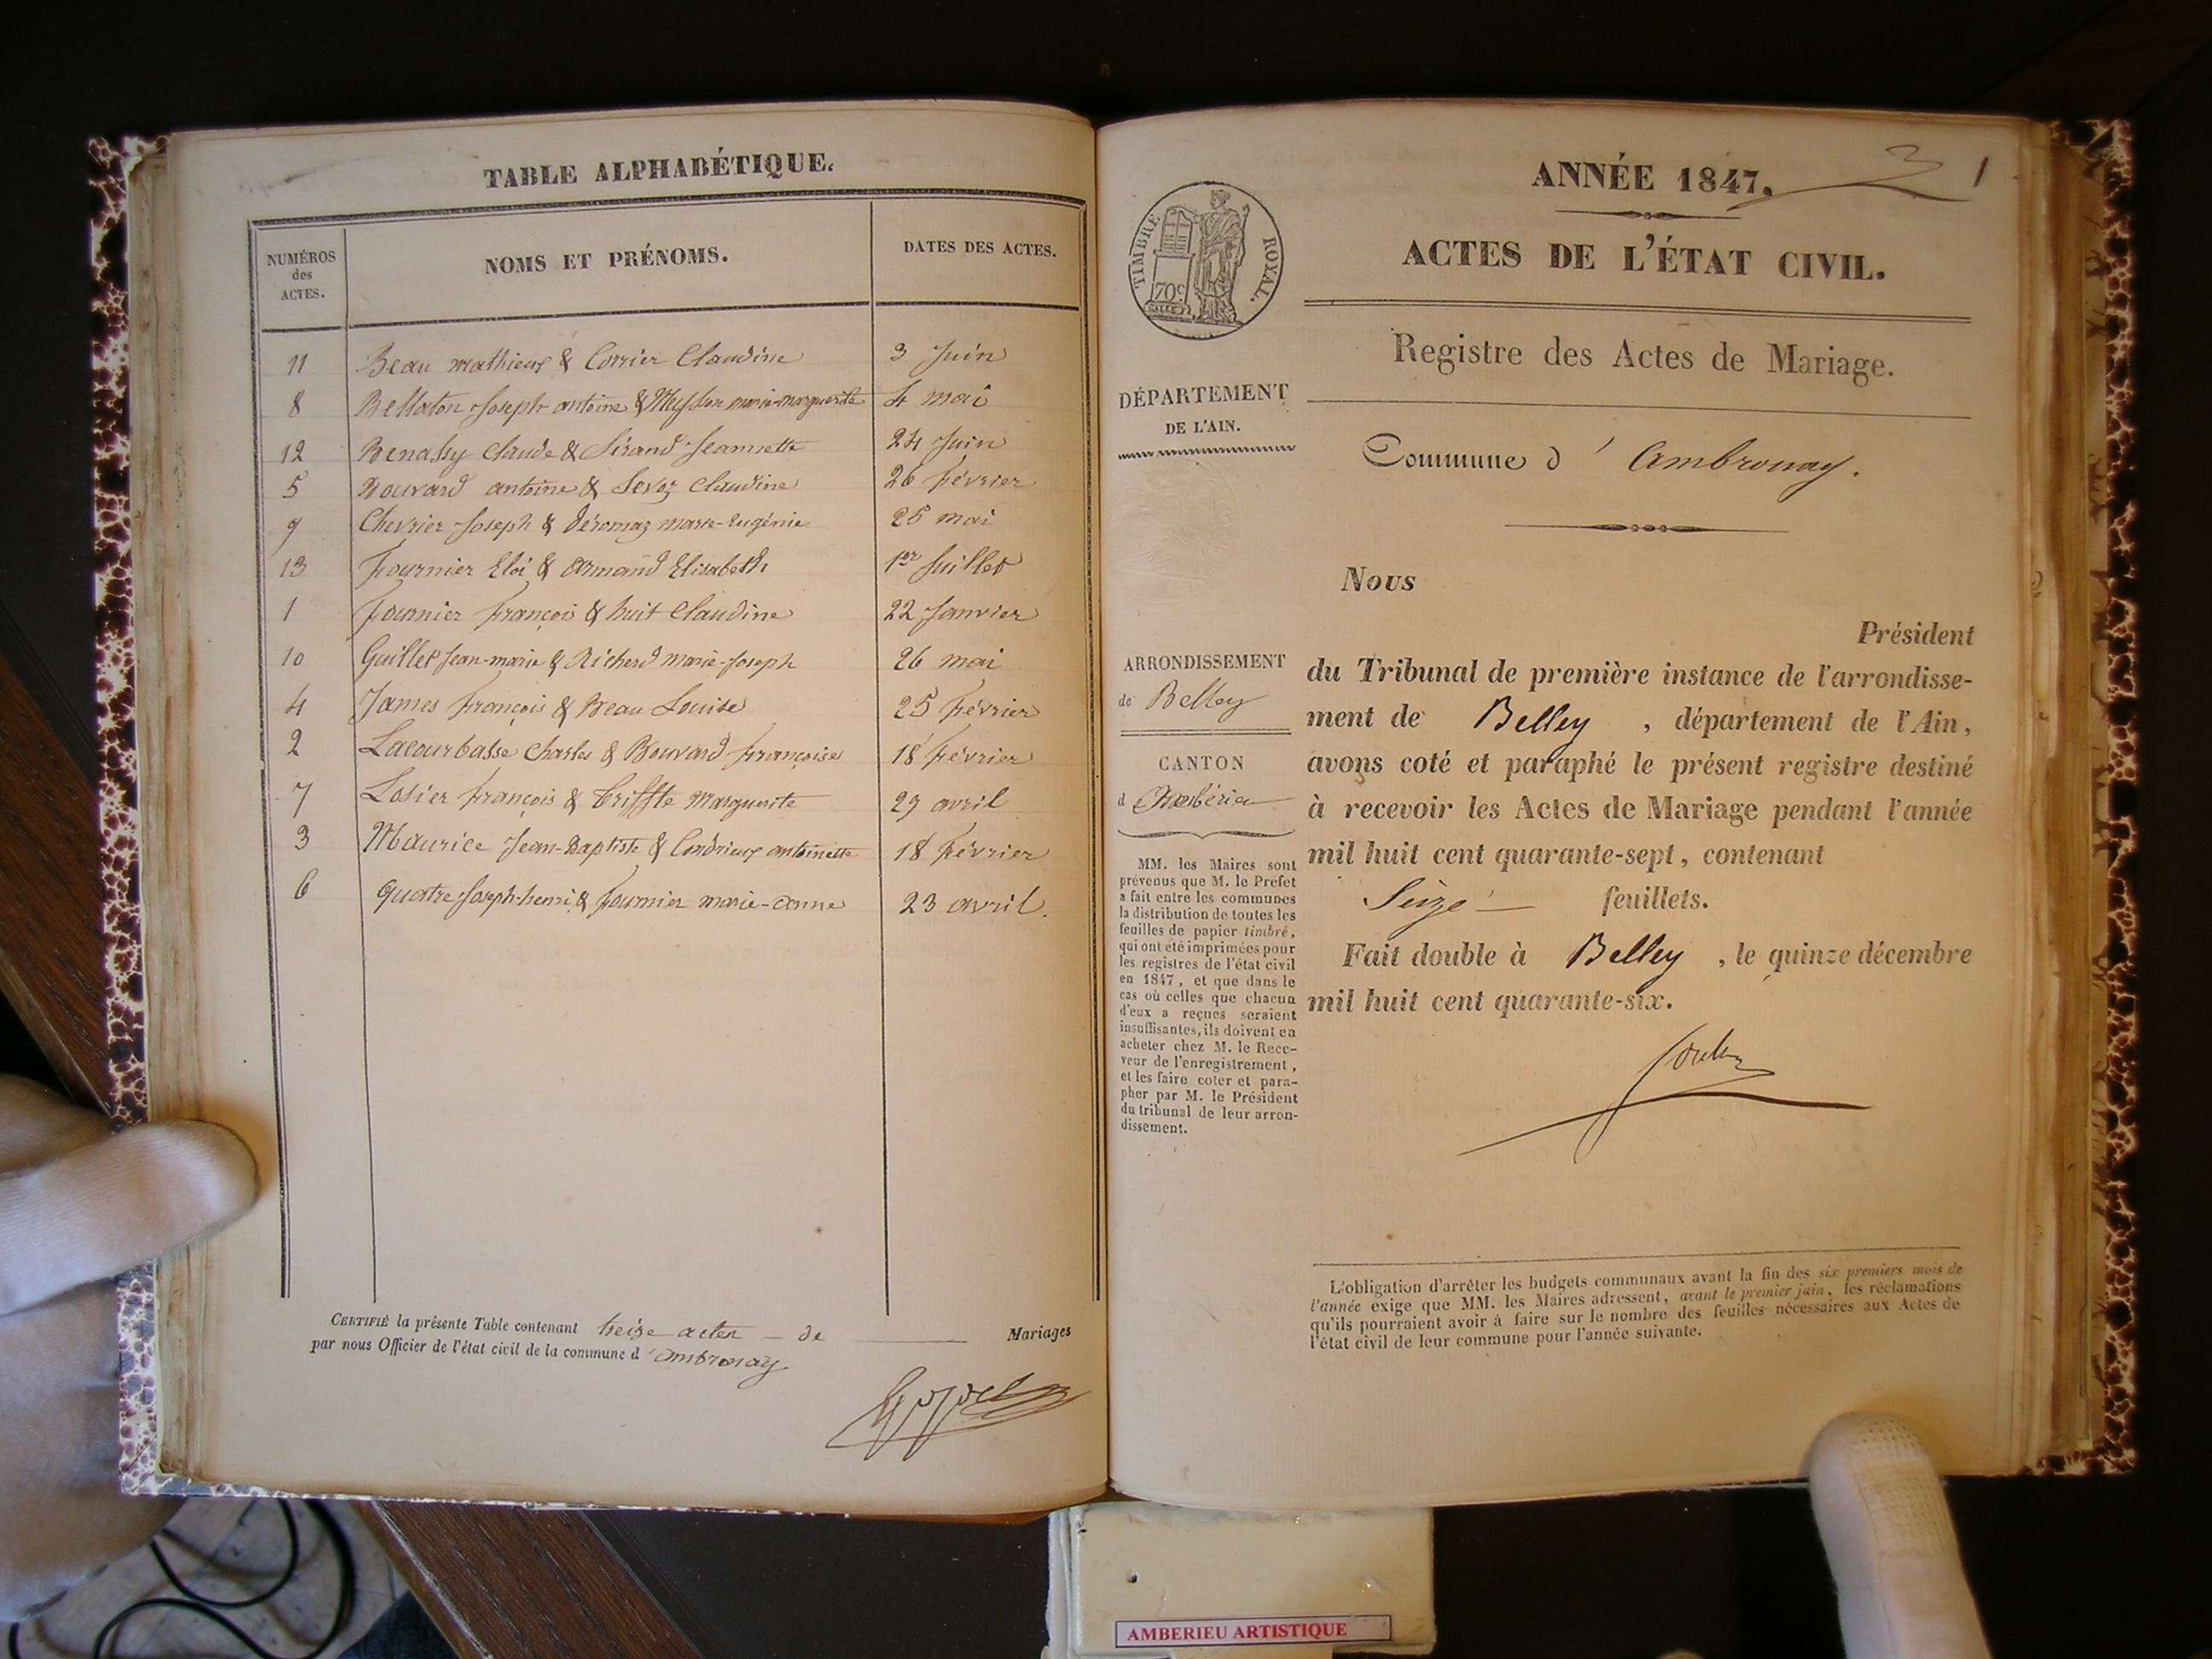 TABLE ALPHABÉTIQUE.
NUMÉROS des ACTES.
NOMS ET PRÉNOMS.
DATES DES ACTES.
11 Beau mathieux & Corrier Claudine 3 Juin
8 Bellaton Joseph antoine & marie-marguerite 4 mai
12 Benassy Claude & Sirand Jeannette 24 Juin
5 Bouvard antoine & Claudine 26 février
9 Chevrier Joseph & Déromaz marie-Eugénie 25 mai
13 Fournier Eloi & Armand Elisabeth 1er Juillet
1 Fournier françois & huit Claudine 22 Janvier
10 Guillet Jean-marie & Richerd marie-Joseph 26 mai
4 James françois & Beau Louise 25 février
2 Lacourbasse Charles & Bouvard françoise 18 février
7 Losier françois & Marguerite 29 avril
3 Maurice Jean-Baptiste & Condrieux antoinette 18 février
6 quatre Joseph-henri & fournier marie-anne 23 avril.
CERTIFIÉ la présente Table contenant treize actes — de — Mariages
par nous Officier de l'état civil de la commune d'ambronay
ANNÉE 1847. 1
TIMBRE ROYAL.
70c
ACTES DE L'ÉTAT CIVIL.
Registre des Actes de Mariage.
DÉPARTEMENT
DE L'AIN.
Commune d' Ambronay.
Nous
Président
ARRONDISSEMENT
de Belley
CANTON
d'Ambérieu
du Tribunal de première instance de l'arrondisse-
ment de Belley, département de l'Ain,
avons coté et paraphé le présent registre destiné
à recevoir les Actes de Mariage pendant l'année
mil huit cent quarante-sept, contenant
Seize — feuillets.
Fait double à Belley, le quinze décembre
mil huit cent quarante-six.
MM. les Maires sont
prévenus que M. le Préfet
a fait entre les communes
la distribution de toutes les
feuilles de papier timbré,
qui ont été imprimées pour
les registres de l'état civil
en 1847, et que dans le
cas où celles que chacun
d'eux a reçues seraient
insuffisantes, ils doivent en
acheter chez M. le Rece-
veur de l'enregistrement,
et les faire coter et para-
pher par M. le Président
du tribunal de leur arron-
dissement.
L'obligation d'arrêter les budgets communaux avant la fin des six premiers mois de
l'année exige que MM. les Maires adressent, avant le premier juin, les réclamations
qu'ils pourraient avoir à faire sur le nombre des feuilles nécessaires aux Actes de
l'état civil de leur commune pour l'année suivante.
AMBERIEU ARTISTIQUE